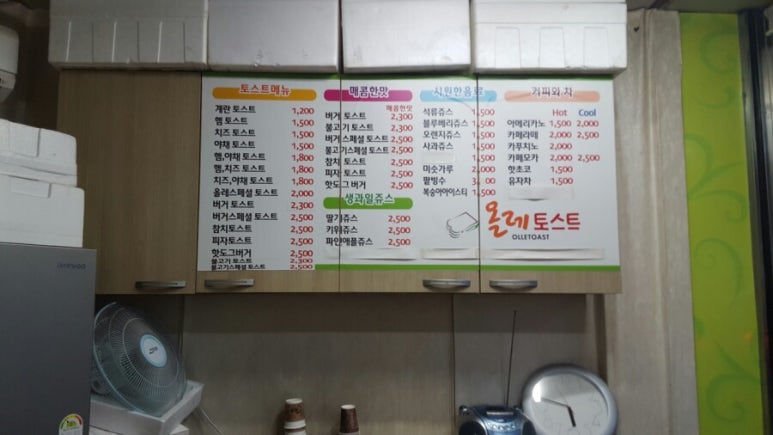 토스트메뉴
계란 토스트 1,200
햄 토스트 1,500
치즈 토스트 1,500
야채 토스트 1,500
햄,야채 토스트 1,800
햄,치즈 토스트 1,800
치즈,야채 토스트 1,800
올레스페셜 토스트 2,000
버거 토스트 2,300
버거스페셜 토스트 2,500
참치토스트 2,500
피자토스트 2,500
핫도그버거 2,500
불고기 토스트 2,300
불고기스페셜 토스트 2,500
매콤한맛
매콤한맛
버거 토스트 2,300
불고기 토스트 2,300
버거스페셜 토스트 2,500
불고기스페셜 토스트 2,500
참치 토스트 2,500
피자 토스트 2,500
핫도그 버거 2,500
생과일쥬스
딸기쥬스 2,500
키위쥬스 2,500
파인애플쥬스 2,500
시원한음료
석류쥬스 1,500
블루베리쥬스 1,500
오렌지쥬스 1,500
사과쥬스 1,500
미숫가루 2,000
팥빙수
복숭아아이스티 1,500
커피와 차
Hot Cool
아메리카노 1,500 2,000
카페라떼 2,000 2,500
카푸치노 2,000
카페모카 2,000 2,500
핫초코 1,500
유자차 1,500
올레 토스트
OLLETOAST
DAEWOO